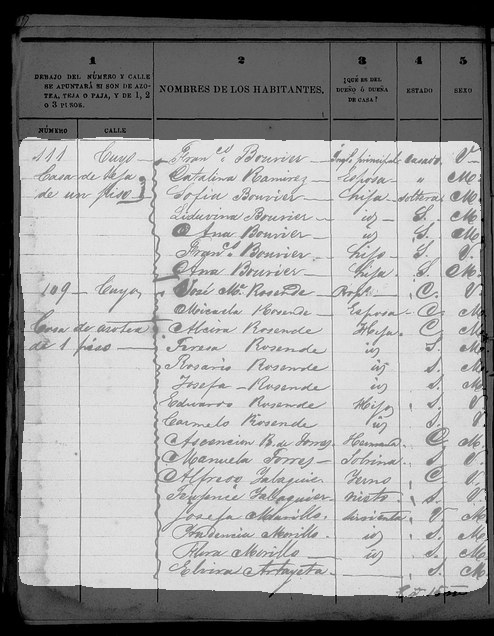 1 2 3 4 5
DEBAJO DEL NÚMERO Y CALLE SE APUNTARÁ SI SON DE AZOTEA, TEJA O PAJA, Y DE 1, 2 O 3 PISOS.
NOMBRES DE LOS HABITANTES,
¿QUÉ ES DEL DUEÑO Ó DUEÑA DE CASA?
ESTADO
SEXO
NÚMERO CALLE
111 Cuyo Franco Bouvier principal Casado V.
Casa de teja Catalina Ramirez Esposa " M.
de un piso Sofia Bouvier hija soltera M.
Liduvina Bouvier id S. M.
Ana Bouvier id S. M.
Franco Bouvier hijo S. V.
Ana Bouvier hija S. M.
109 Cuyo José Ma. Rosende C. V.
Micaela Rosende Esposa C. M.
Casa de azotea Alcira Rosende Hija C M.
de 1 piso Teresa Rosende id S. M.
Rosario Rosende id S. M
Josefa Rosende id S. M
Eduardo Rosende Hijo S. V
Carmelo Rosende id S. V
Ascencion R. de Torres Hermana C M.
Manuela Torres Sobrina S. V
Alfredo Yerno C. V.
nieto S. V
Josefa Morillo sirvienta V M
Prudencia Morillo id S. M
Morillo id S. M
Elvira S. M.